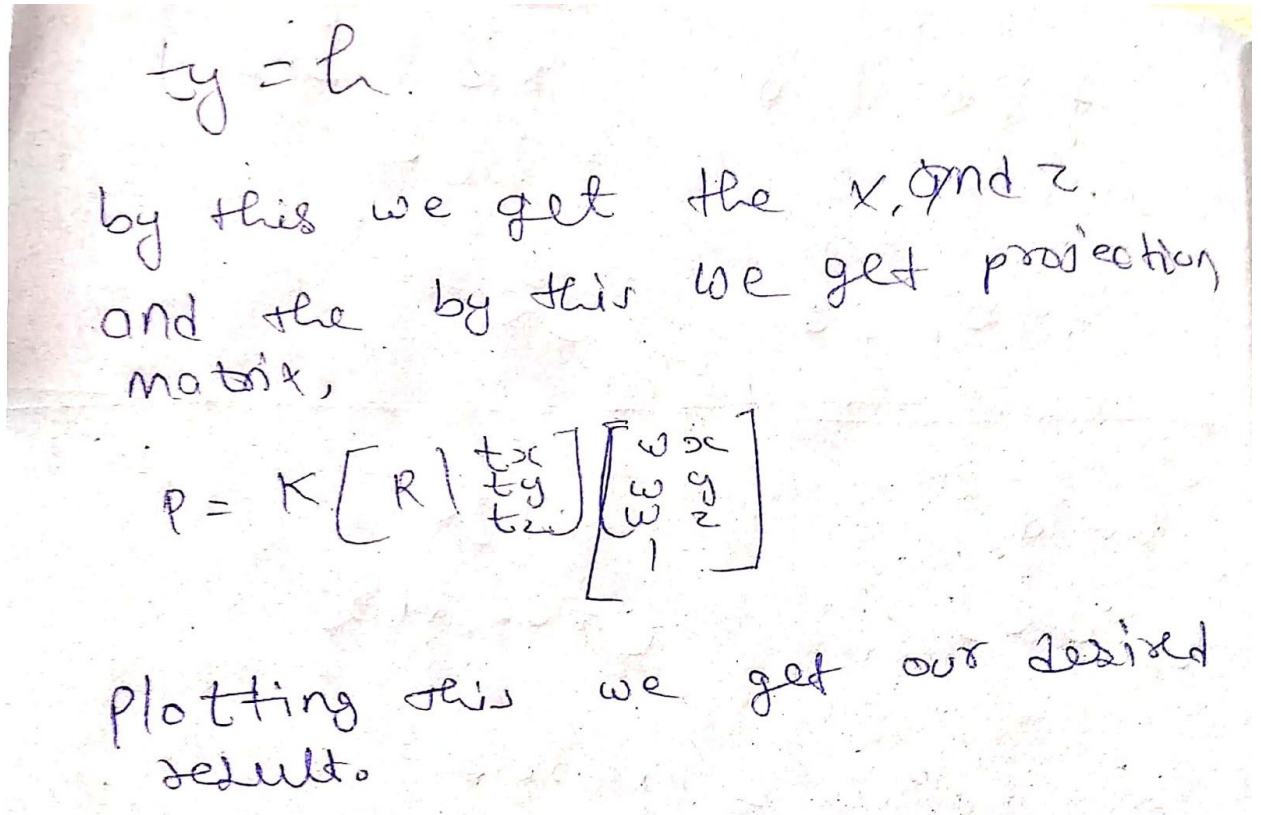 ty = h.
by this we get the x, and z.
and the by this we get projection
matrix,
P = K [ R | tx ty tz ] [ wx wy wz 1 ]
Plotting this we get our desired
result.